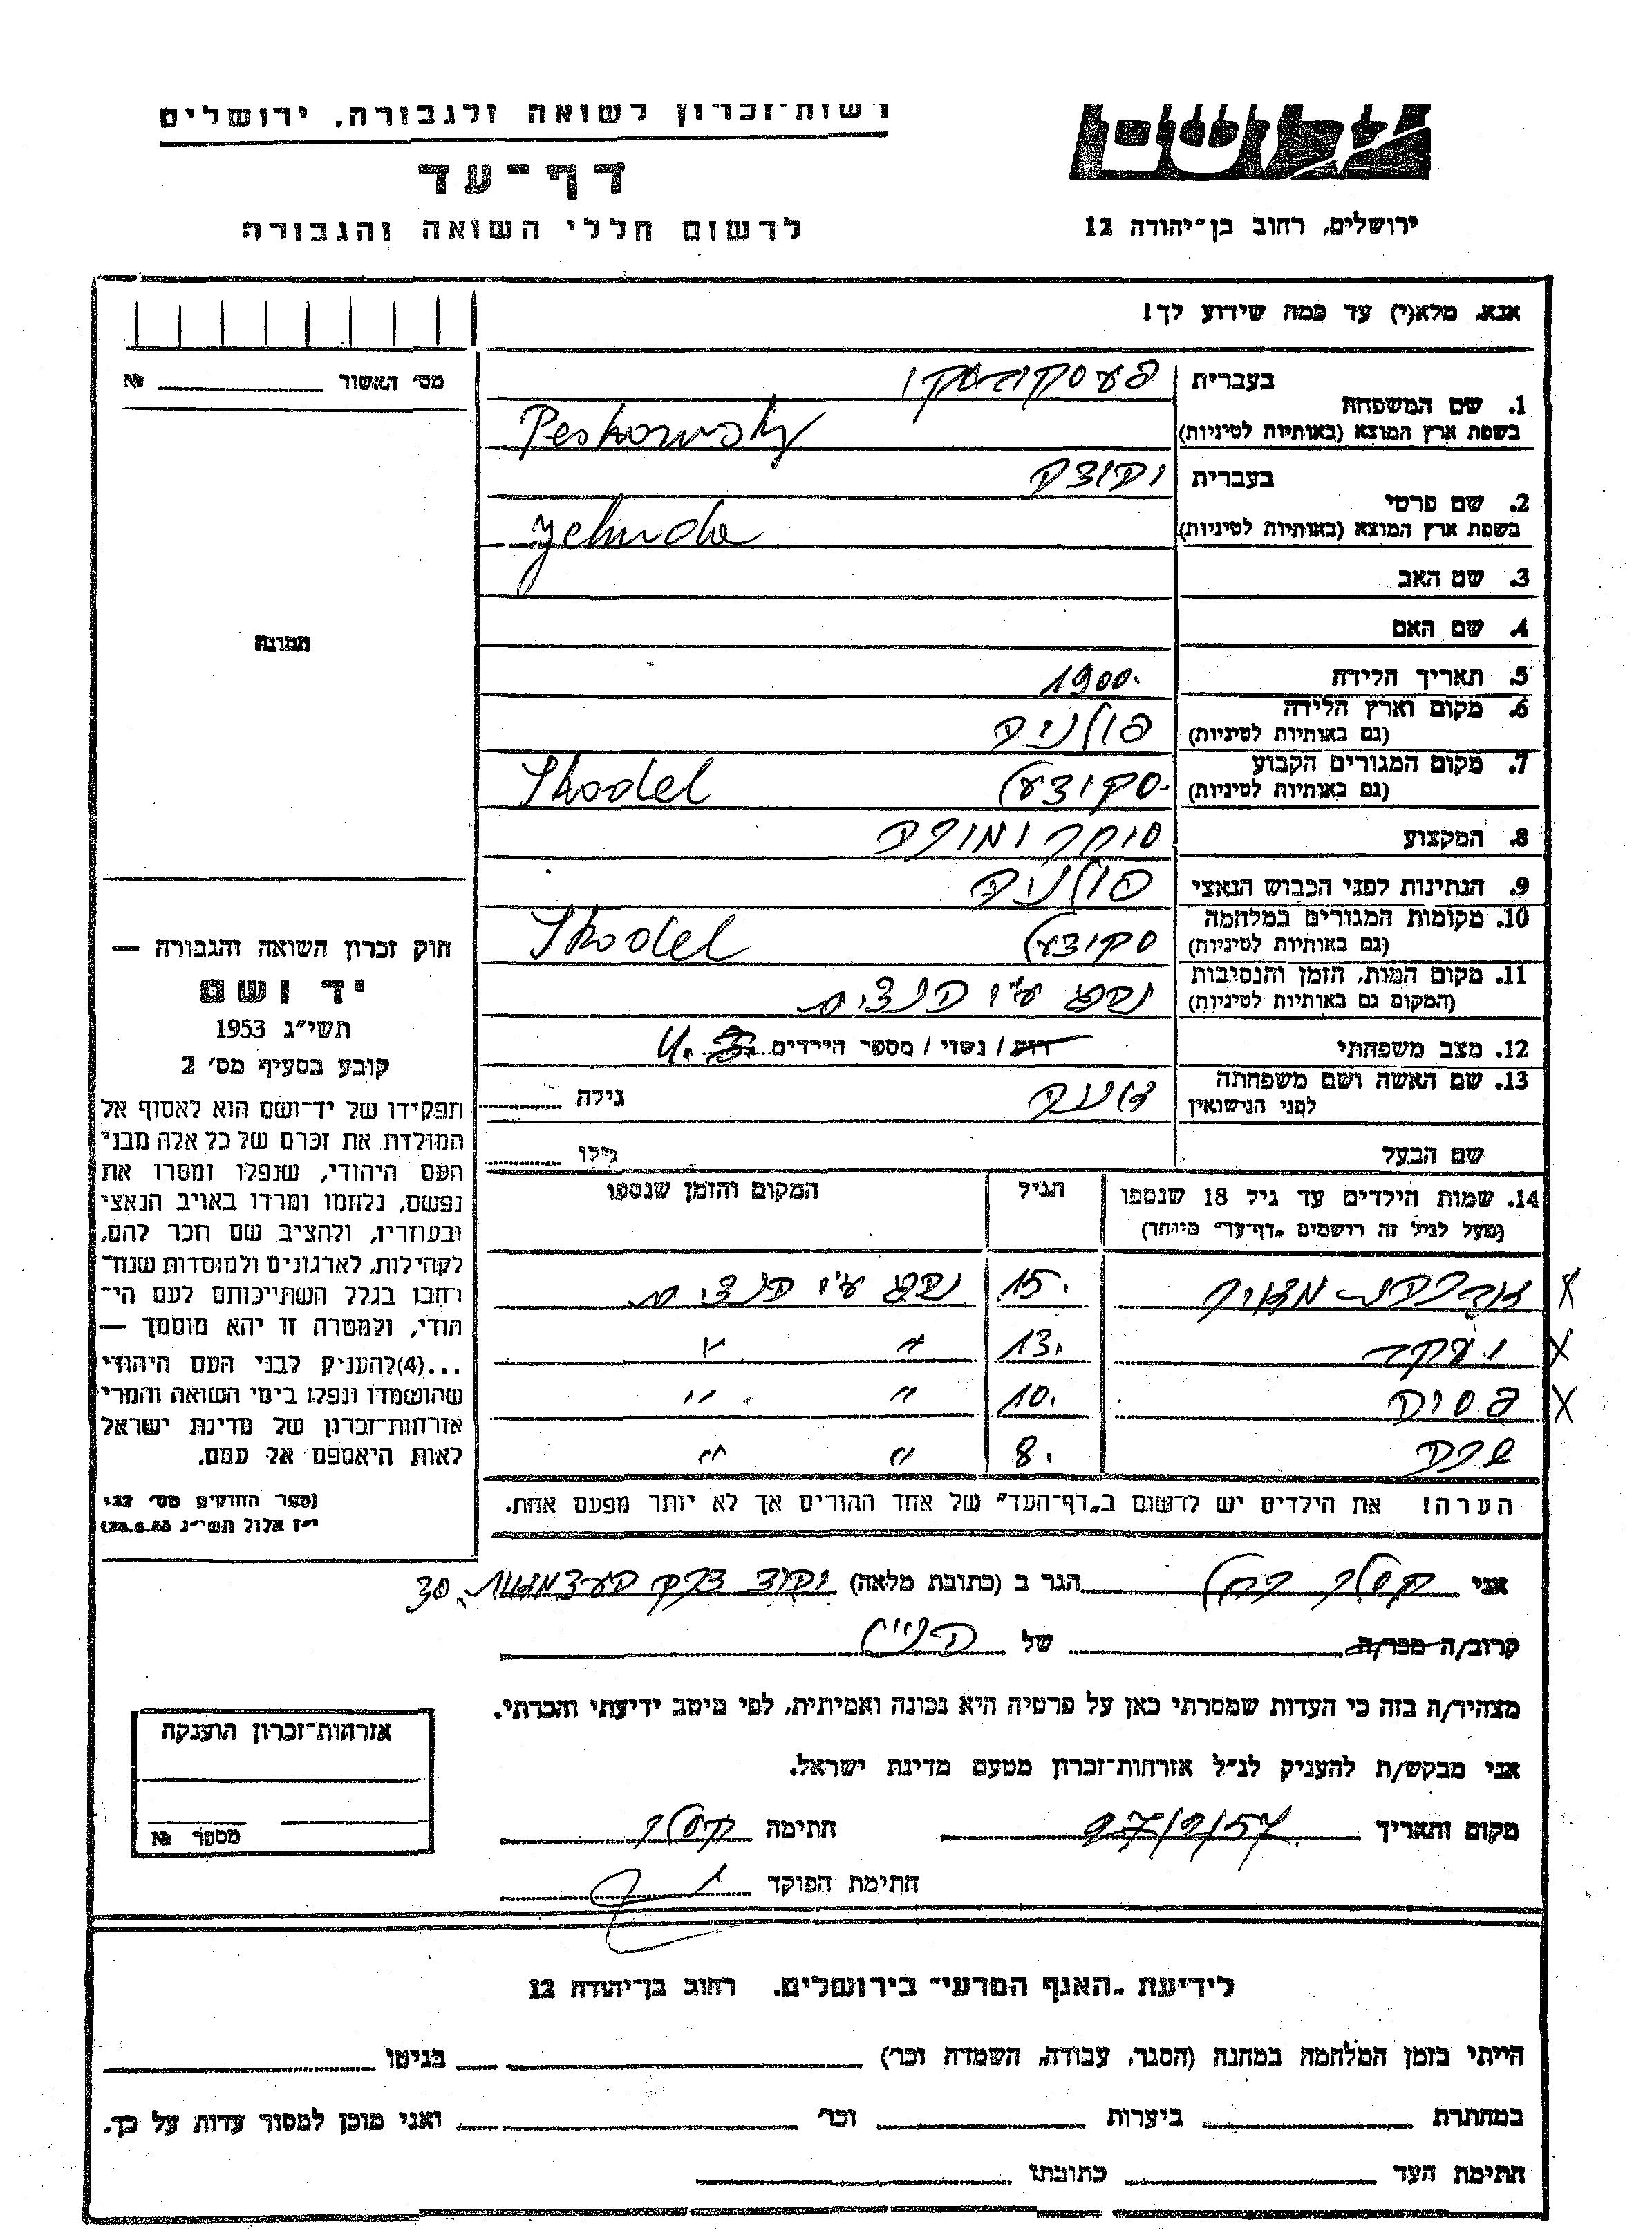 רשות־זכרון לשואה ולגבורה, ירושלים
דף־עד
לרשום חללי השואה והגבורה
ירושלים, רחוב בן־יהודה 12
אנא, מלא(י) עד כמה שידוע לך!
מס׳ האשור №
1. שם המשפחה
בעברית פעסקובסקי
בשפת ארץ המוצא (באותיות לטיניות) Peskowsky
2. שם פרטי
בעברית יהודה
בשפת ארץ המוצא (באותיות לטיניות) Yehuda
3. שם האב
4. שם האם
תמונה
5. תאריך הלידה 1900.
6. מקום וארץ הלידה פולניה
(גם באותיות לטיניות)
7. מקום המגורים הקבוע סקודעל Skodel
(גם באותיות לטיניות)
8. המקצוע סוחר ומורה
9. הנתינות לפני הכבוש הנאצי פולניה
10. מקומות המגורים במלחמה סקודעל Skodel
(גם באותיות לטיניות)
11. מקום המות, הזמן והנסיבות נהרג ע״י הנצים
(המקום גם באותיות לטיניות)
12. מצב משפחתי רוק / נשוי / מספר הילדים 4.
13. שם האשה ושם משפחתה
לפני הנישואין
גילה
שם הבעל גילו
14. שמות הילדים עד גיל 18 שנספו הגיל המקום והזמן שנספו
(מעל לגיל זה רושמים „דף־עד״ מיוחד)
15. נהרג ע״י הנצים X
יעקב 13. ״ ״ X
פסיה 10. ״ ״ X
שרה 8. ״ ״
הערה! את הילדים יש לרשום ב„דף־העד״ של אחד ההורים אך לא יותר מפעם אחת.
חוק זכרון השואה והגבורה —
יד ושם
תשי״ג 1953
קובע בסעיף מס׳ 2
תפקידו של יד־ושם הוא לאסוף אל
המולדת את זכרם של כל אלה מבני
העם היהודי, שנפלו ומסרו את
נפשם, נלחמו ומרדו באויב הנאצי
ובעוזריו, ולהציב שם וזכר להם,
לקהילות, לארגונים ולמוסדות שנח־
רחבו בגלל השתייכותם לעם הי־
הודי, ולמטרה זו יהא מוסמך —
...(4) להעניק לבני העם היהודי
שהושמדו ונפלו בימי השואה והמרי
אזרחות־זכרון של מדינת ישראל
לאות היאספם אל עמם.
(ספר החוקים מס׳ 132
י״ז אלול תשי״ג 28.8.53)
אני קסלר רחל הגר ב (כתובת מלאה) יהוד דרך העצמאות 30.
קרוב/ה מכר/ה של
מצהיר/ה בזה כי העדות שמסרתי כאן על פרטיה היא נכונה ואמיתית, לפי מיטב ידיעתי והכרתי.
אני מבקש/ת להעניק לנ״ל אזרחות־זכרון מטעם מדינת ישראל.
מקום ותאריך 27/2/57 חתימה קסלר
חתימת הפוקד
אזרחות־זכרון הוענקה
מספר №
לידיעת „האגף המדעי״ בירושלים, רחוב בן־יהודה 12
הייתי בזמן המלחמה במחנה (הסגר, עבודה, השמדה וכו׳) בגיטו
במחתרת ביערות וכו׳ ואני מוכן למסור עדות על כך.
חתימת העד כתובתו